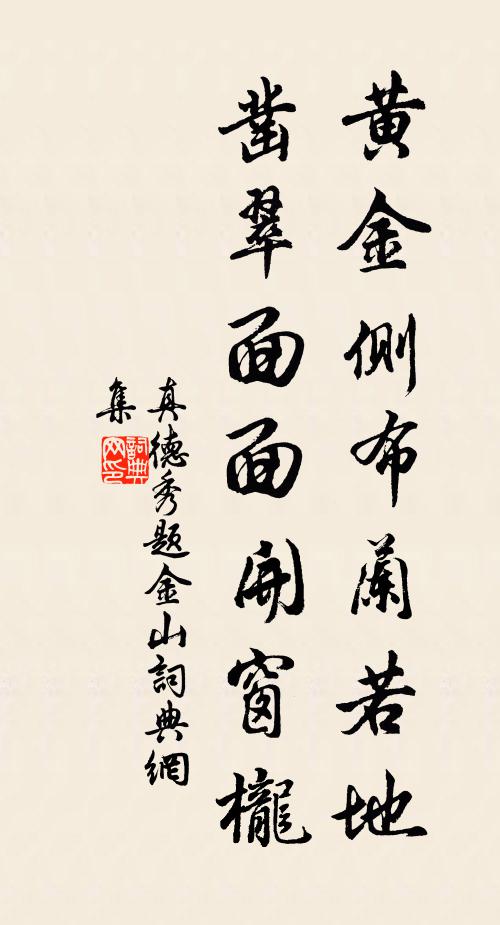 黄金側布蘭若地
鑿翠面面開窗櫳
真德秀题金山詞典網
集
詞典網印